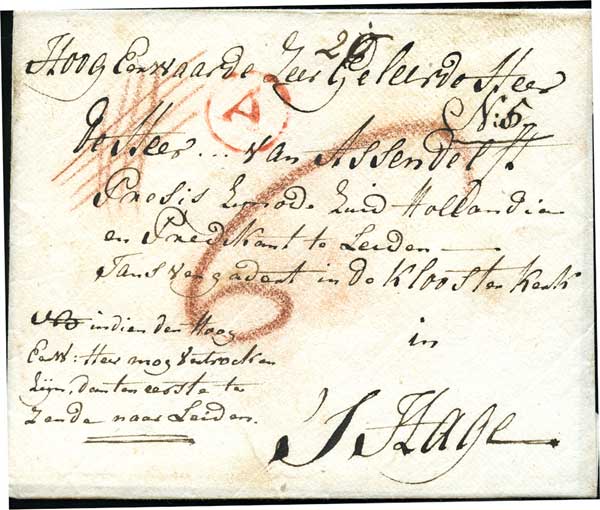 26
Hoog Eerwaarde Zeer Geleerde Heer
A
N: 5
de Heer ... van Assendelft
Presis Synode Zuid Hollandia
en Predikant te Leiden
6
Tans vergadert in de Klooster Kerk
in
'S Hage
NB indien den Hoog
Eerw: Heer mog vertrocken
Zijn, dan ten eerste te
Zende naar Leiden.